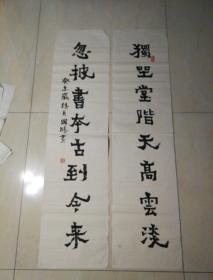 獨坐堂階天高雲淡
忽披書本古到今来